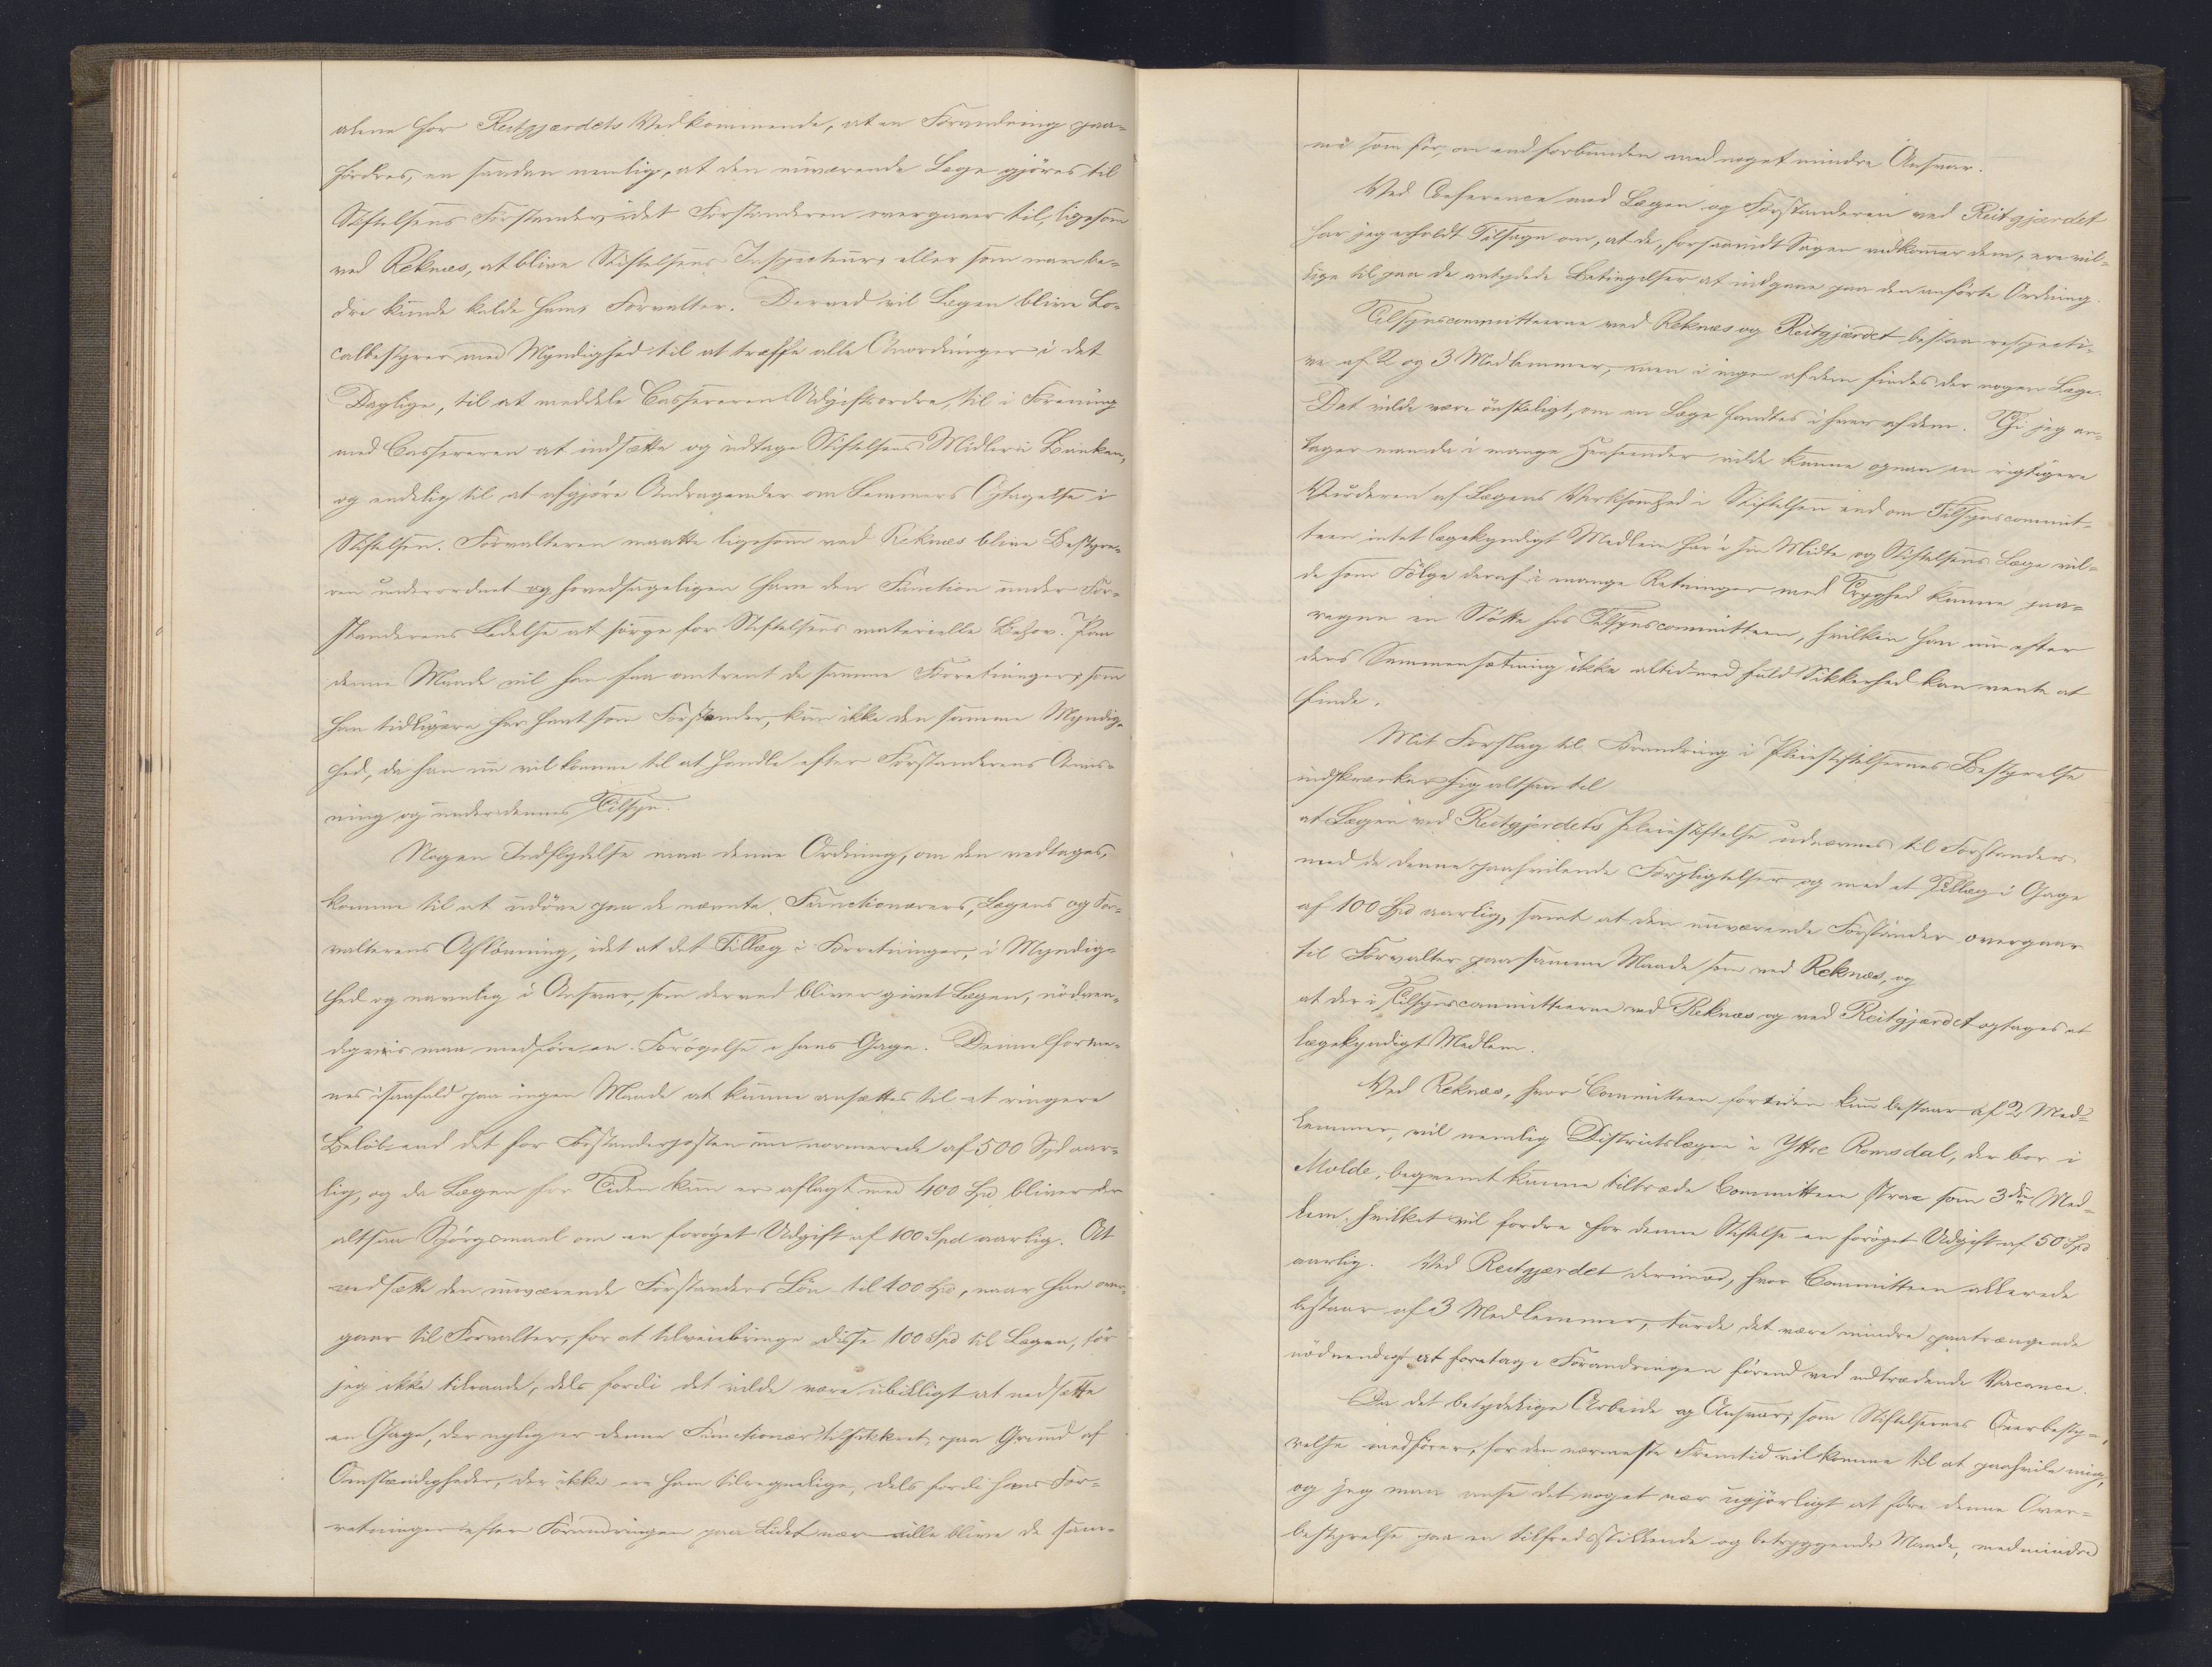 alene for Reitgjærdets Vedkommende, at en Forandring paa-
fordres, en saadan nemlig, at den nuværende Læge gjøres til
Stiftelsens Forstander, idet Forstanderen overgaaer til, ligesom
ved Reknæs, at blive Stiftelsens Inspecteur, eller som man be-
dre kunde kalde ham, Forvalter. Derved vil Lægen blive Lo-
calbestyrer med Myndighed til at træffe alle Anordninger i det
Daglige, til at meddele Cassereren Udgiftsordre, til i Forening
med Cassereren at indsætte og udtage Stiftelsens Midler i Banken,
og endelig til at afgjøre Andragender om Lemmers Optagelse i
Stiftelsen. Forvalteren maatte ligesom ved Reknæs blive Bestyre-
ren underordnet og hovedsageligen have den Function under For-
standerens Ledelse at sörge for Stiftelsens materielle Behov. Paa
denne Maade vil han faa omtrent de samme Forretninger, som
han tidligere har havt som Forstander, kun ikke den samme Myndig-
hed, da han nu vil komme til at handle efter Forstanderens Anvis-
ning og under dennes Tilsyn.
Nogen Indflydelse maa denne Ordning, om den vedtages,
komme til at udöve paa de nævnte Functionærers, Lægens og For-
valterens Aflönning, idet at det Tillæg i Forretninger, i Myndig-
hed og navnlig i Ansvar, som derved bliver givet Lægen, nödven-
digviis maa medföre en Forögelse i hans Gage. Denne forme-
nes isaafald paa ingen Maade at kunne ansættes til et ringere
Belöb end det for Forstanderposten nu normerede af 500 Spd aar-
lig, og da Lægen for Tiden kun er aflagt med 400 Spd, bliver der
altsaa Spörgsmaal om en foröget Udgift af 100 Spd aarlig. At
nedsætte den nuværende Forstanders Lön til 400 Spd, naar han over-
gaar til Forvalter, for at tilveiebringe disse 100 Spd til Lægen, tör
jeg ikke tilraade, dels fordi det vilde være ubilligt at nedsætte
en Gage, der nylig er denne Functionær tilsikkret, paa Grund af
Omstændigheder, der ikke ere ham tilregnelige, dels fordi hans For-
retninger efter Forandringen paa Lidet nær ville blive de sam-
me som för, om end forbunden med noget mindre Ansvar.
Ved Conference med Lægen og Forstanderen ved Reitgjærdet
har jeg erholdt Tilsagn om, at de, forsaavidt Sagen vedkommer dem, ere vil-
lige til paa de antydede Betingelser at indgaae paa den anförte Ordning.
Tilsynscommitteerne ved Reknæs og Reitgjærdet bestaa respecti-
ve af 2 og 3 Medlemmer, men i ingen af dem findes der nogen Læge.
Det vilde være önskeligt, om en Læge fandtes i hver af dem. Thi jeg an-
tager man da i mange Henseender vilde kunne opnaa en rigtigere
Vurderen af Lægens Virksomhed i Stiftelsen end om Tilsynscommit-
teen intet lægekyndigt Medlem har i sin Midte og Stiftelsens Læge vil-
de som Fölge deraf i mange Retninger med Tryghed kunne paa-
regne en Stötte hos Tilsynscommitteen, hvilken han nu efter
dens Sammensætning ikke altid med fuld Sikkerhed kan vente at
finde.
Mit Forslag til Forandring i Pleiestiftelsernes Bestyrelse
indskrænker sig altsaa til
at Lægen ved Reitgjerdets Pleiestiftelse udnævnes til Forstander
med de denne paahvilende Forpligtelser og med et Tillæg i Gage
af 100 Spd aarlig, samt at den nuværende Forstander overgaar
til Forvalter paa samme Maade som ved Reknæs, og
at der i Tilsynscommitteerne ved Reknæs og ved Reitgjærdet optages et
lægekyndigt Medlem.
Ved Reknæs, hvor Committeen for tiden kun bestaar af 2 Med-
lemmer, vil nemlig Districtslægen i Yttre Romsdal, der bor i
Molde, beqvemt kunne tiltræde Committeen strax som 3die Med-
lem, hvilket vil fordre for denne Stiftelse en foröget Udgift af 50 Spd
aarlig. Ved Reitgjærdet derimod, hvor Committeen allerede
bestaar af 3 Medlemmer, turde det være mindre paatrængende
nödvendigt at foretage Forandringen förend ved indtrædende Vacance.
Da det betydelige Arbeide og Ansvar, som Stiftelsernes Overbesty-
relse medförer, for den nærmeste Fremtid vil komme til at paahvile mig,
og jeg maa anse det noget nær ugjörligt at före denne Over-
bestyrelse paa en tilfredsstillende og betryggende Maade, medmindre